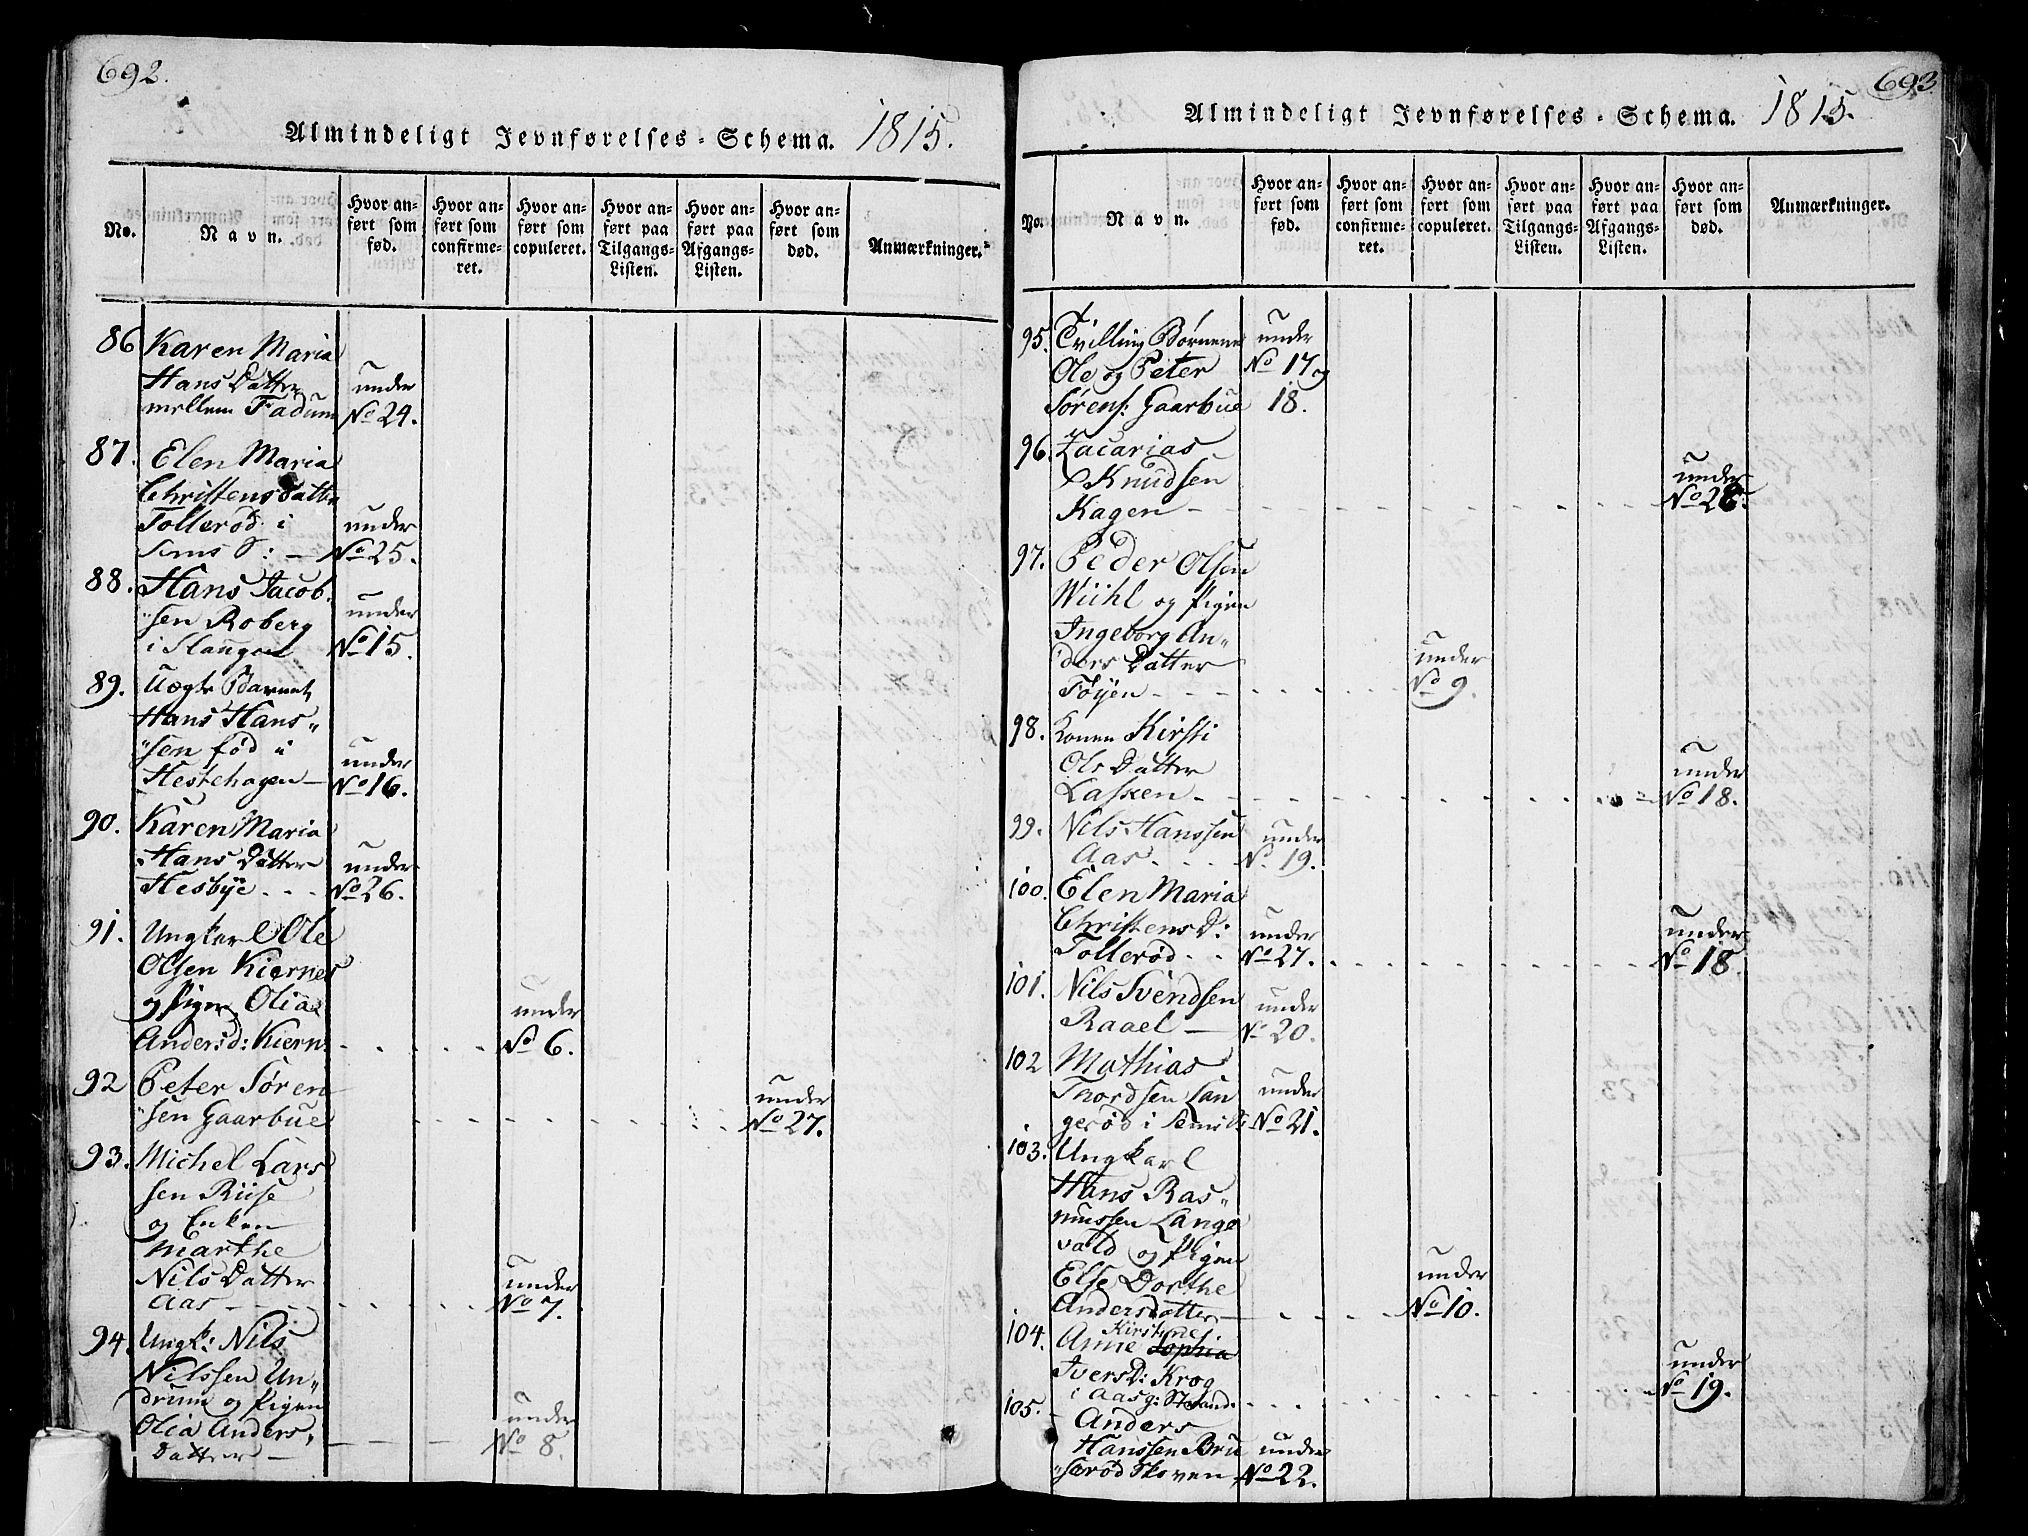 692.
Almindeligt Jevnførelses-Schema. 1815.
No.
Navn.
Hvor an-
ført som
fød.
Hvor an-
ført som
confirme-
ret.
Hvor an-
ført som
copuleret.
Hvor an-
ført paa
Tilgangs-
Listen.
Hvor an-
ført paa
Afgangs-
Listen.
Hvor an-
ført som
død.
Anmærkninger.
86 Karen Maria
Hans Datter under
mellem Fadum No 24.
87. Elen Maria
Christensdatter
Tollerød i under
Sems S: No 25.
88. Hans Jacob-
sen Roberg under
i Slangen No 15.
89. Uægte Barnet
Hans Hans-
sen fød i under
Hestehagen No 16.
90. Karen Maria
Hans Datter under
Hesbÿe No 26.
91. Ungkarl Ole
Olsen Kiernes
og Pigen Olia under
Andersd: Kiern No 6.
92 Peter Søren- under
sen Gaarbue No 27.
93. Michel Lars
sen Riise
og Enken
Marthe
Nils Datter under
Aas No 7.
94. Ungk: Nils
Nilssen Un-
drum og Pigen under
Olia Anders, No 8.
Datter
693
Almindeligt Jevnførelses-Schema. 1815.
No.
Navn.
Hvor an-
ført som
fød.
Hvor an-
ført som
confirme-
ret.
Hvor an-
ført som
copuleret.
Hvor an-
ført paa
Tilgangs-
Listen.
Hvor an-
ført paa
Afgangs-
Listen.
Hvor an-
ført som
død.
Anmærkninger.
95. Tvilling Børnene under
Ole og Peter No 17 og
Sørens: Gaarbue 18.
96. Zacarias
Knudsen under
Kagen No 28.
97. Peder Olsen
Wiihl og Pigen
Ingeborg An-
ders Datter under
Føÿen No 9.
98. Konen Kirsti
Ols Datter under
Lasken No 18.
99. Nils Hanssen under
Aas No 19.
100. Elen Maria
Christens D: under under
Tollerød No 27. No 18.
101. Nils Svendsen under
Raael No 20.
102 Mathias
Thordsen Lan under
gerød i Sems S: No 21.
103. Ungkarl
Hans Ras-
mussen Lange
vald og Pigen
Else Dorthe under
Andersdatter No 10.
Kirstine
104. Anne Sophia
Ivers D: Krog under
i Aasg: Strand. No 19.
105. Anders
Hanssen Bru under
serød Skoven No 22.